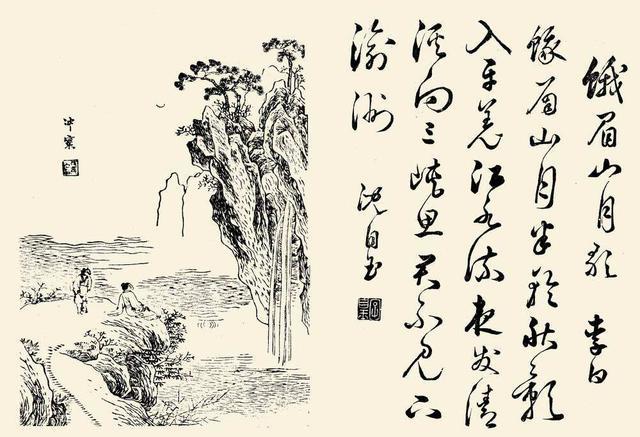 蛾眉山月歌 李白
蛾眉山月半輪秋影
入平羌江水流夜发清
溪向三峡思君不见下
渝洲
沈自玉
冲寰